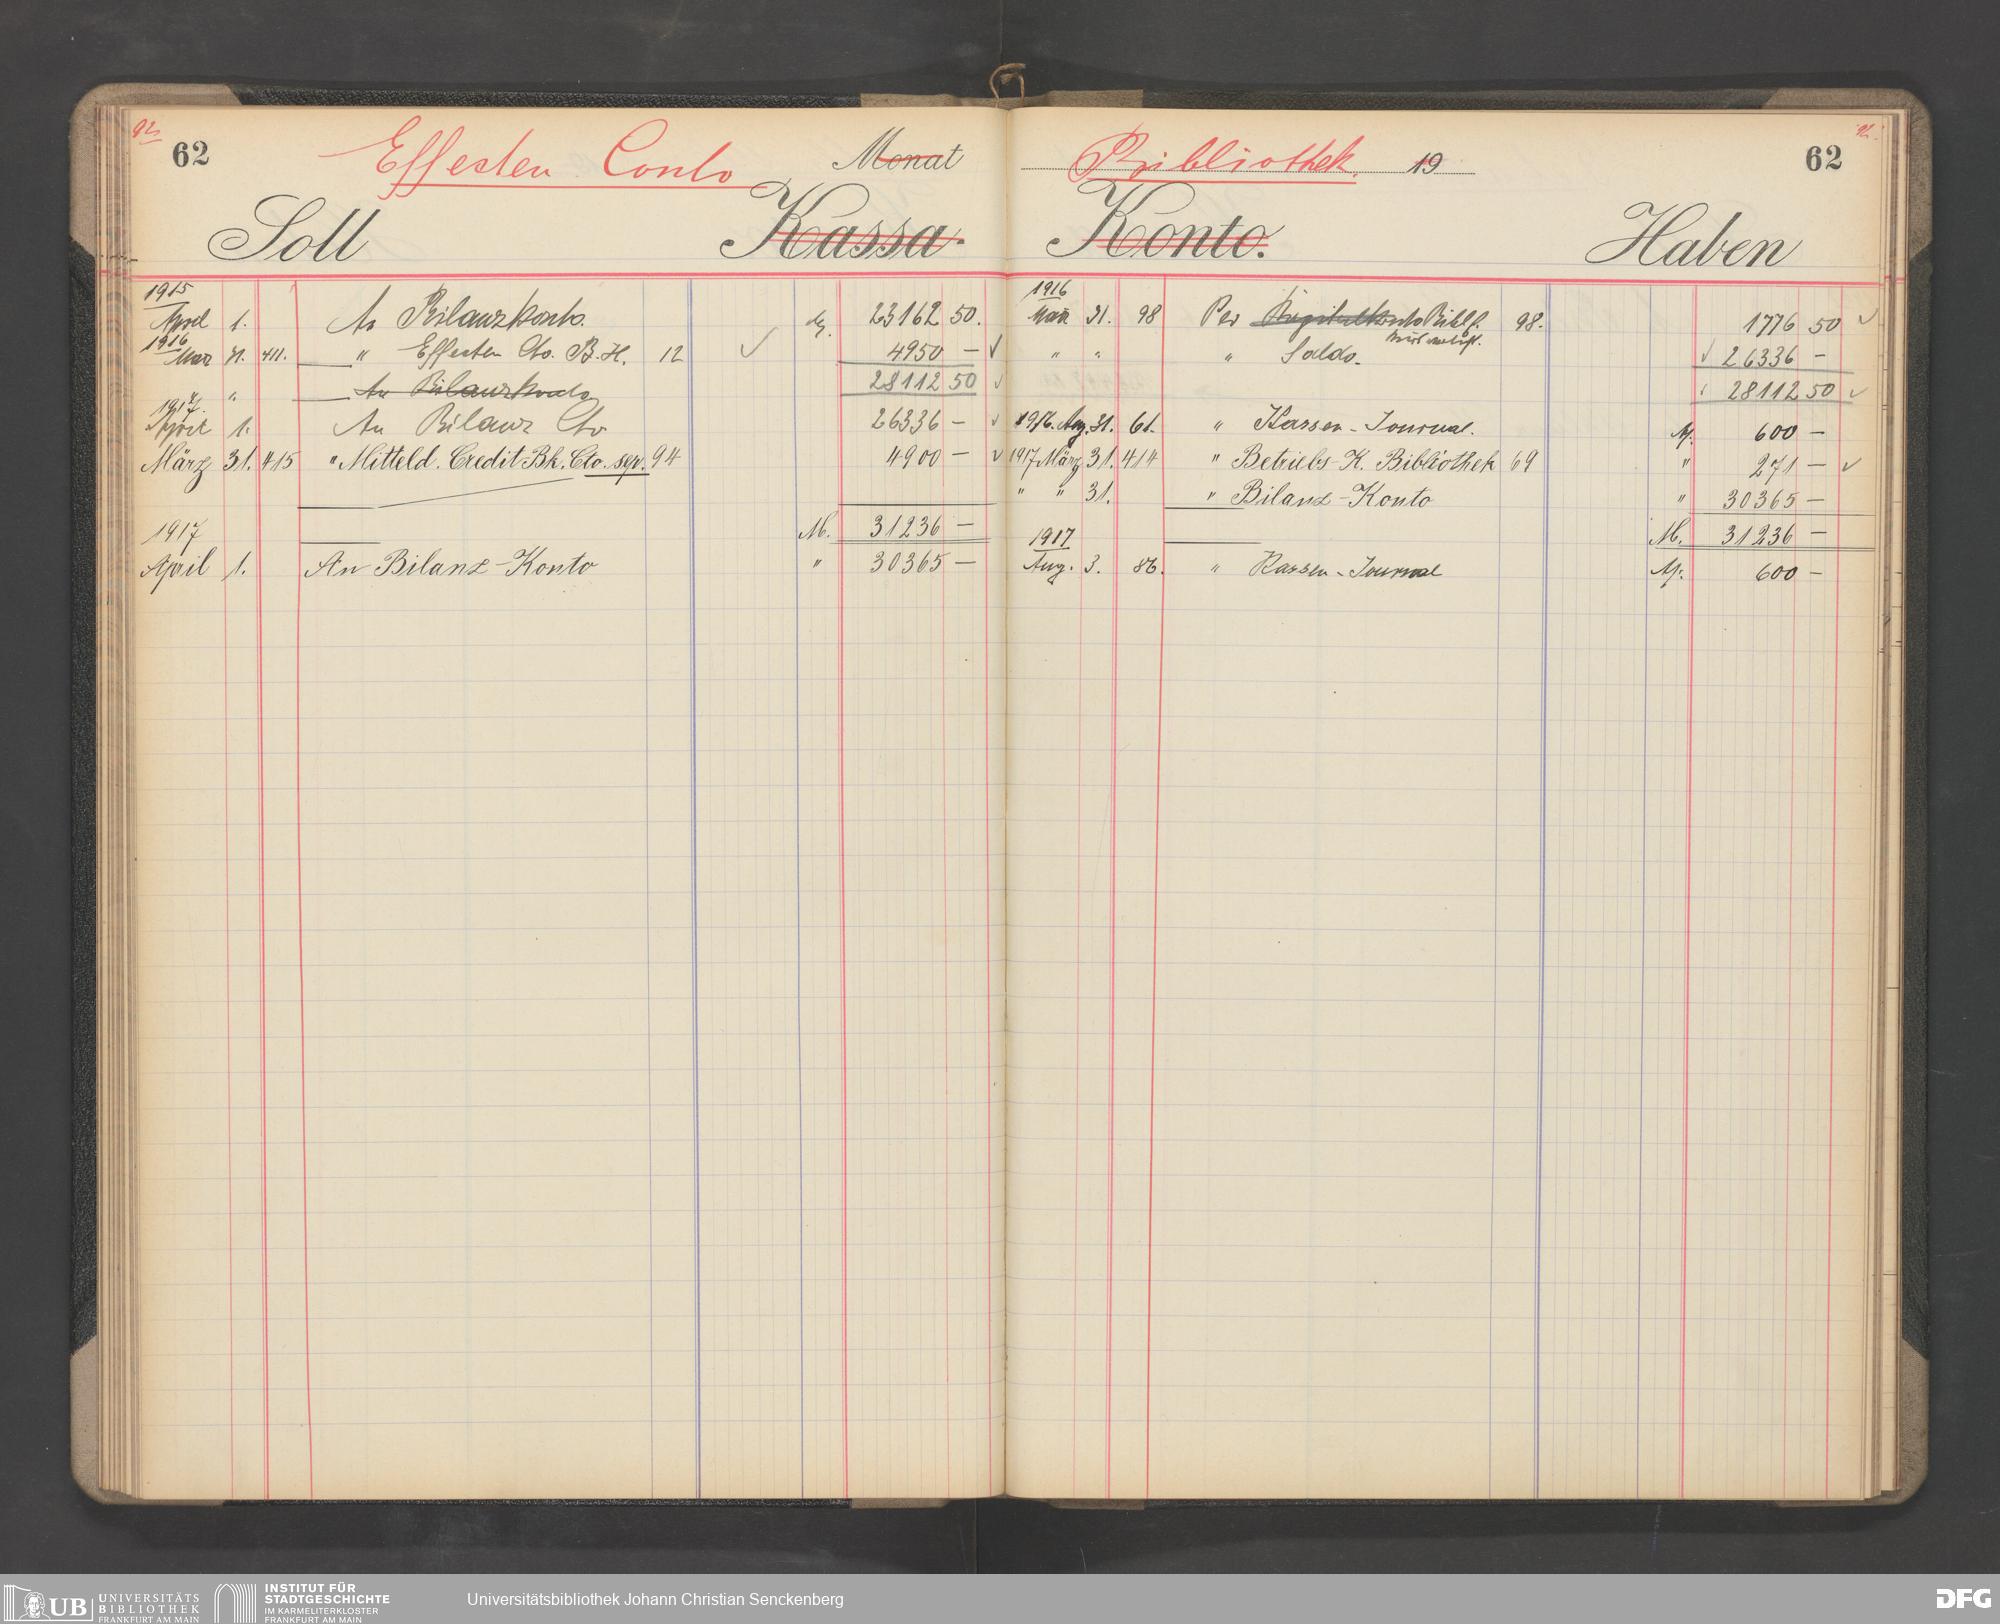 62
Effecten Conto
Monat
Soll
Kassa-
1915
April 1. An Bilanzkonto. 23162 50.
1916
März 31. 411. " Effecten Cto. B. H. 12 4950 —
" " An Bilanzkonto 28112 50
1917.
April 1. An Bilanz Cto 26336 —
März 31. 415 " Mitteld. Credit-Bk. Cto. sep. 94 4900 —
1917 M. 31236 —
April 1. An Bilanz-Konto " 30365 —
Bibliothek. 19
62
Konto.
Haben
1916
März 31. 98 Per Bibl. 98. 1776 50
" " " Saldo. 26336 —
28112 50
1916. Aug. 31. 61. " Kassen-Journal. M. 600 —
1917 März 31. 414 " Betriebs-K. Bibliothek 69 " 271 —
" " 31. " Bilanz-Konto " 30365 —
M. 31236 —
1917
Aug. 3. 86. " Kassen-Journal M. 600 —
UB UNIVERSITÄTS
BIBLIOTHEK
FRANKFURT AM MAIN
INSTITUT FÜR
STADTGESCHICHTE
IM KARMELITERKLOSTER
FRANKFURT AM MAIN
Universitätsbibliothek Johann Christian Senckenberg
DFG